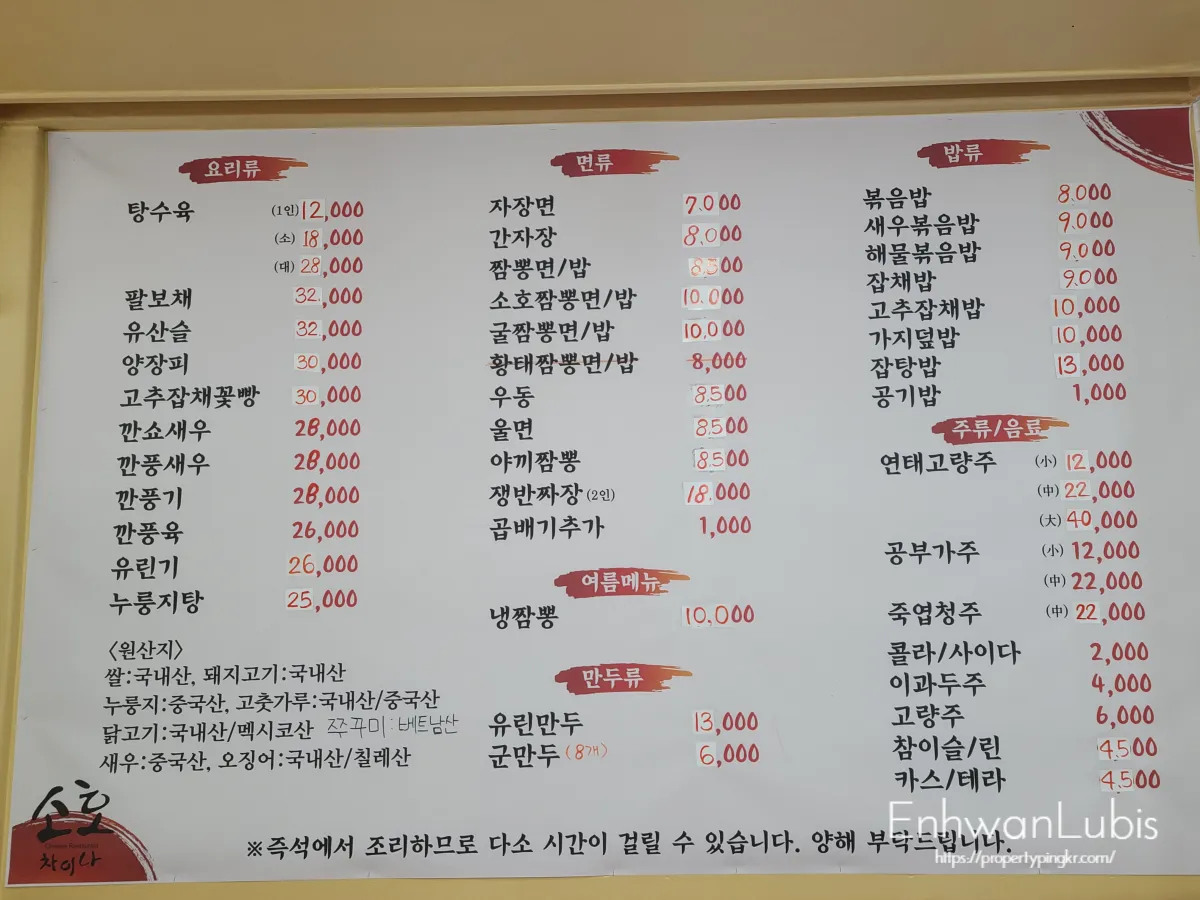 요리류
탕수육 (1인) 12,000
(소) 18,000
(대) 28,000
팔보채 32,000
유산슬 32,000
양장피 30,000
고추잡채꽃빵 30,000
깐쇼새우 28,000
깐풍새우 28,000
깐풍기 28,000
깐풍육 26,000
유린기 26,000
누룽지탕 25,000
〈원산지〉
쌀:국내산, 돼지고기:국내산
누룽지:중국산, 고춧가루:국내산/중국산
닭고기:국내산/멕시코산 쭈꾸미:베트남산
새우:중국산, 오징어:국내산/칠레산
면류
자장면 7.000
간자장 8.000
짬뽕면/밥 8.500
소호짬뽕면/밥 10.000
굴짬뽕면/밥 10.000
황태짬뽕면/밥 8,000
우동 8.500
울면 8.500
야끼짬뽕 8.500
쟁반짜장 (2인) 18.000
곱배기추가 1,000
여름메뉴
냉짬뽕 10.000
만두류
유린만두 13,000
군만두 (8개) 6,000
밥류
볶음밥 8.000
새우볶음밥 9.000
해물볶음밥 9.000
잡채밥 9.000
고추잡채밥 10,000
가지덮밥 10,000
잡탕밥 13,000
공기밥 1,000
주류/음료
연태고량주 (小) 12,000
(中) 22,000
(大) 40,000
공부가주 (小) 12,000
(中) 22,000
죽엽청주 (中) 22,000
콜라/사이다 2,000
이과두주 4,000
고량주 6,000
참이슬/린 4.500
카스/테라 4.500
소호
차이나
※즉석에서 조리하므로 다소 시간이 걸릴 수 있습니다. 양해 부탁드립니다.
EnhwanLubis
https://propertypingkr.com/